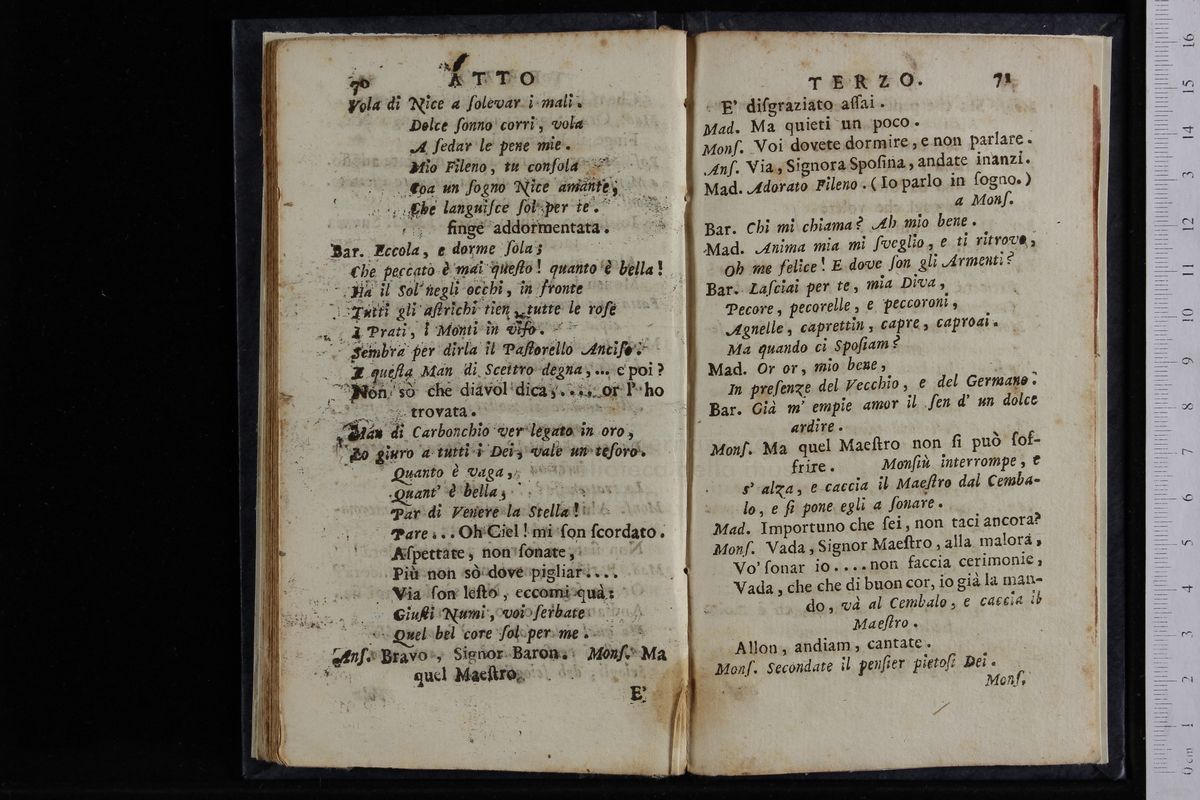 70 ATTO
Vola di Nice a ſolevar i mali.
Dolce ſonno corri, vola
A ſedar le pene mie.
Mio Fileno, tu conſola
Coa un ſogno Nice amante,
Che languiſce ſol per te.
finge addormentata.
Bar. Eccola, e dorme ſola;
Che peccato è mai queſto! quanto è bella!
Ha il Sol negli occhi, in fronte
Tutti gli aſtrichi tien, tutte le roſe
I Prati, i Monti in viſo.
Sembra per dirla il Paſtorello Anciſo.
E queſta Man di Scettro degna,... e poi?
Non sò che diavol dica,.... or l' ho
trovata.
Man di Carbonchio ver legato in oro,
Lo giuro a tutti i Dei, vale un teſoro.
Quanto è vaga,
Quant' è bella,
Par di Venere la Stella!
Pare... Oh Ciel! mi ſon ſcordato.
Aſpettate, non ſonate,
Più non sò dove pigliar....
Via ſon leſto, eccomi quà:
Giuſti Numi, voi ſerbate
Quel bel core ſol per me.
Anſ. Bravo, Signor Baron. Monſ. Ma
quel Maeſtro
E'
TERZO. 71
E' diſgraziato aſſai.
Mad. Ma quieti un poco.
Monſ. Voi dovete dormire, e non parlare.
Anſ. Via, Signora Spoſina, andate inanzi.
Mad. Adorato Fileno. (Io parlo in ſogno.)
a Monſ.
Bar. Chi mi chiama? Ah mio bene.
Mad. Anima mia mi ſveglio, e ti ritrovo,
Oh me felice! E dove ſon gli Armenti?
Bar. Laſciai per te, mia Diva,
Pecore, pecorelle, e peccoroni,
Agnelle, caprettin, capre, caproai.
Ma quando ci Spoſiam?
Mad. Or or, mio bene,
In preſenze del Vecchio, e del Germano.
Bar. Già m' empie amor il ſen d' un dolce
ardire.
Monſ. Ma quel Maeſtro non ſi può ſof-
frire. Monſiù interrompe, e
s' alza, e caccia il Maeſtro dal Cemba-
lo, e ſi pone egli a ſonare.
Mad. Importuno che ſei, non taci ancora?
Monſ. Vada, Signor Maeſtro, alla malora,
Vo' ſonar io....non faccia cerimonie,
Vada, che che di buon cor, io già la man-
do, và al Cembalo, e caccia il
Maeſtro.
Allon, andiam, cantate.
Monſ. Secondate il penſier pietoſi Dei.
Monſ.